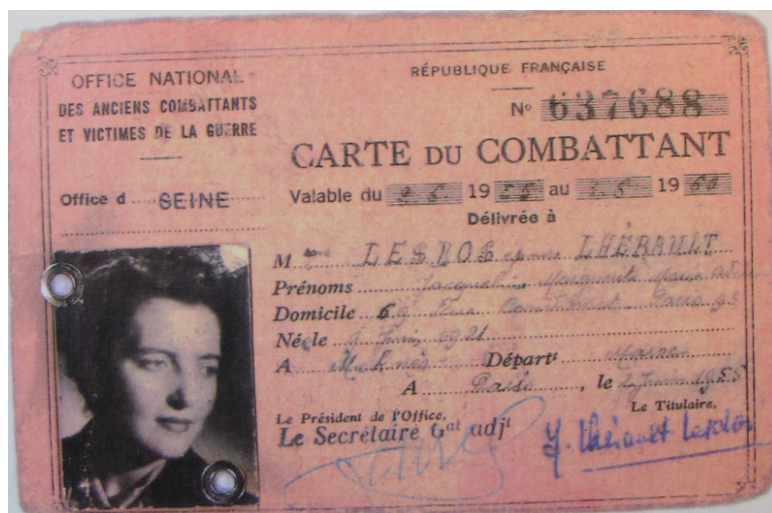 OFFICE NATIONAL
DES ANCIENS COMBATTANTS
ET VICTIMES DE LA GUERRE
Office d SEINE
RÉPUBLIQUE FRANÇAISE
N° 637688
CARTE DU COMBATTANT
Valable du 2.6. 1955 au 2.6. 1960
Délivrée à
Mme LESDOS épouse LHÉRAULT
Prénoms Jacqueline Marguerite Marie
Domicile 69 Paris
Née le Juin 1921
A Département Maroc
A Paris, le 2 Juin 1955
Le Président de l'Office,
Le Secrétaire Gal adjt
Le Titulaire,
J. Lhérault Lesdos